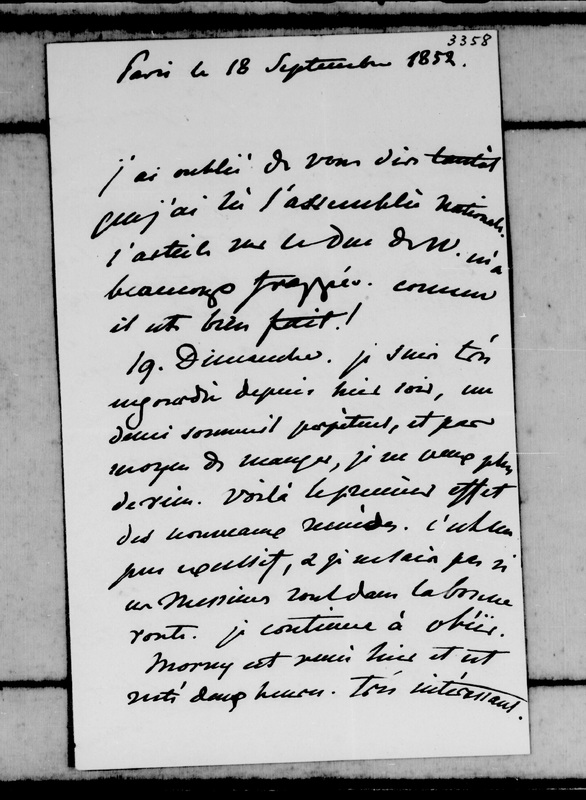 3358
Paris le 18 Septembre 1852.
j'ai oublié de vous dire tantôt
que j'ai lu l'assemblée nationale.
l'article sur le Duc de W. m'a
beaucoup frappée. comme
il est bien fait!
19. Dimanche. je suis très
engourdie depuis hier soir, un
demi sommeil perpétuel, et pas
moyen de manger, je ne veux plus
de rien. Voilà le premier effet
des nouveaux remèdes. c'est un
peu excessif, & je ne sais pas si
ces Messieurs sont dans la bonne
route. je continue à obéir.
Morny est venu hier et est
resté deux heures. très intéressant.